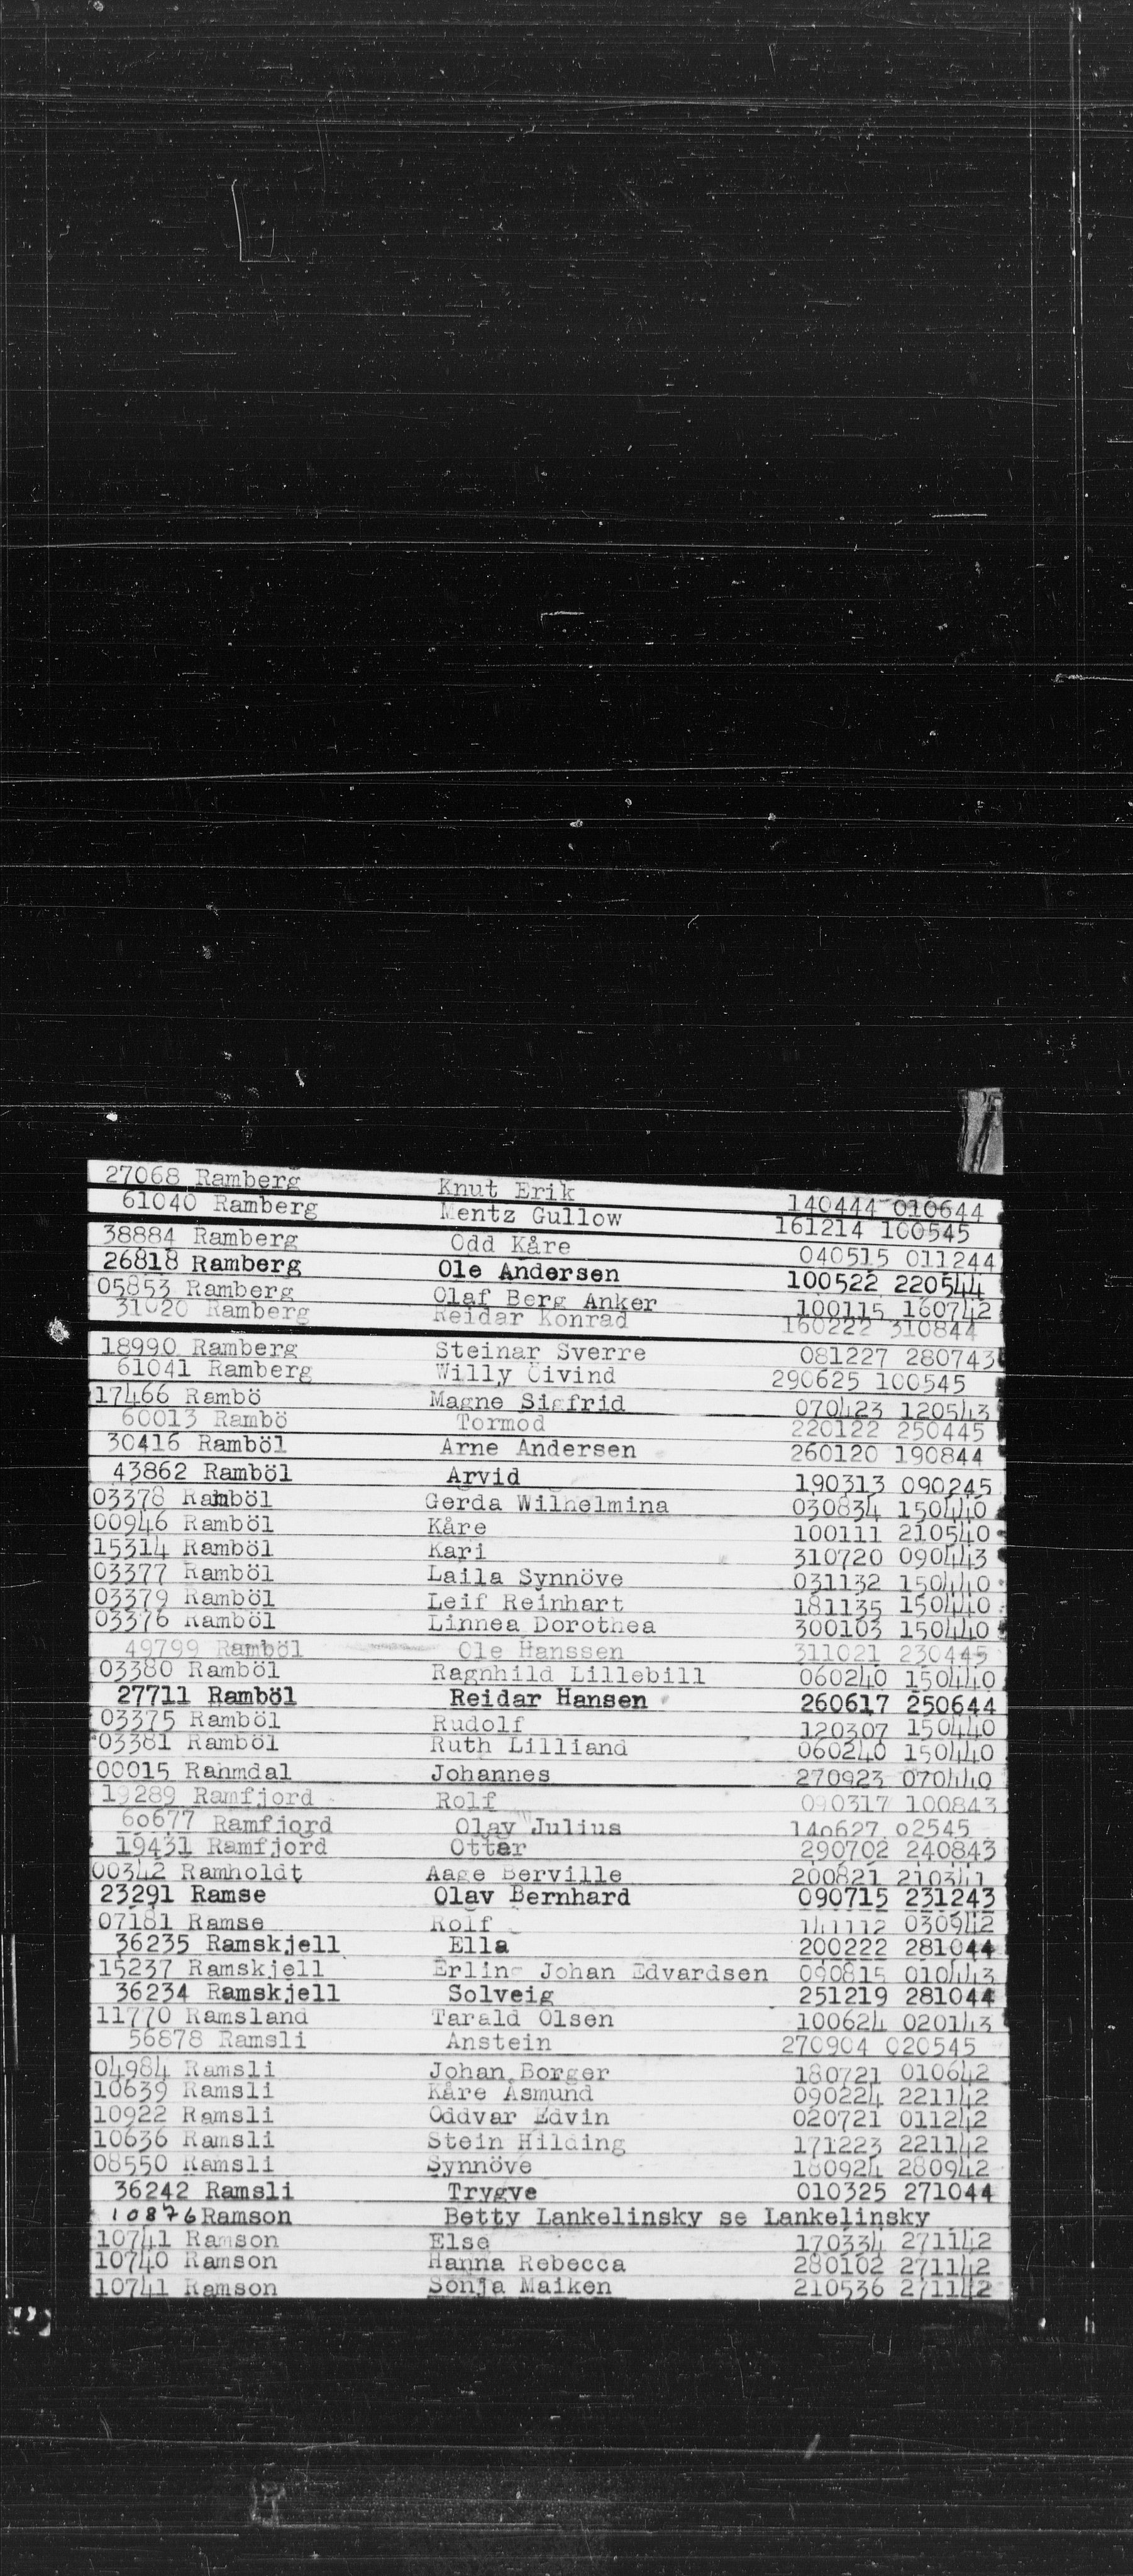 27068 Ramberg Knut Erik 140444 010644
61040 Ramberg Mentz Gullow 161214 100545
38884 Ramberg Odd Kåre 040515 011244
26818 Ramberg Ole Andersen 100522 220544
05853 Ramberg Olaf Berg Anker 100115 160742
31020 Ramberg Reidar Konrad 160222 310844
18990 Ramberg Steinar Sverre 081227 280743
61041 Ramberg Willy Öivind 290625 100545
17466 Rambö Magne Sigfrid 070423 120543
60013 Rambö Tormod 220122 250445
30416 Ramböl Arne Andersen 260120 190844
43862 Ramböl Arvid 190313 090245
03378 Ramböl Gerda Wilhelmina 030834 150440
00946 Ramböl Kåre 100111 210540
15314 Ramböl Kari 310720 090443
03377 Ramböl Laila Synnöve 031132 150440
03379 Ramböl Leif Reinhart 181135 150440
03376 Ramböl Linnea Dorothea 300103 150440
49799 Ramböl Ole Hanssen 311021 230445
03380 Ramböl Ragnhild Lillebill 060240 150440
27711 Ramböl Reidar Hansen 260617 250644
03375 Ramböl Rudolf 120307 150440
03381 Ramböl Ruth Lilliand 060240 150440
00015 Rahmdal Johannes 270923 070440
19289 Ramfjord Rolf 090317 100843
60677 Ramfjord Olav Julius 140627 02545
19431 Ramfjord Ottar 290702 240843
00342 Ramholdt Aage Berville 200821 210341
23291 Ramse Olav Bernhard 090715 231243
07181 Ramse Rolf 141112 030942
36235 Ramskjell Ella 200222 281044
15237 Ramskjell Erling Johan Edvardsen 090815 010443
36234 Ramskjell Solveig 251219 281044
11770 Ramsland Tarald Olsen 100624 020143
56878 Ramsli Anstein 270904 020545
04984 Ramsli Johan Borger 180721 010642
10639 Ramsli Kåre Åsmund 090224 221142
10922 Ramsli Oddvar Edvin 020721 011242
10636 Ramsli Stein Hilding 171223 221142
08550 Ramsli Synnöve 180924 280942
36242 Ramsli Trygve 010325 271044
10876 Ramson Betty Lankelinsky se Lankelinsky
10741 Ramson Else 170334 271142
10740 Ramson Hanna Rebecca 280102 271142
10741 Ramson Sonja Maiken 210536 271142